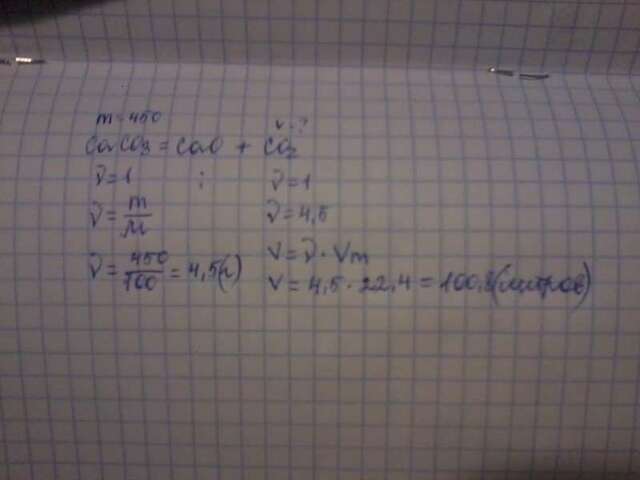 m=450 V-?
CaCO3 = CaO + CO2
ν=1 : ν=1
ν=m/M ν=4,5
ν=450/100=4,5(г) V=ν·Vm
V=4,5·22,4=100,8(литров)